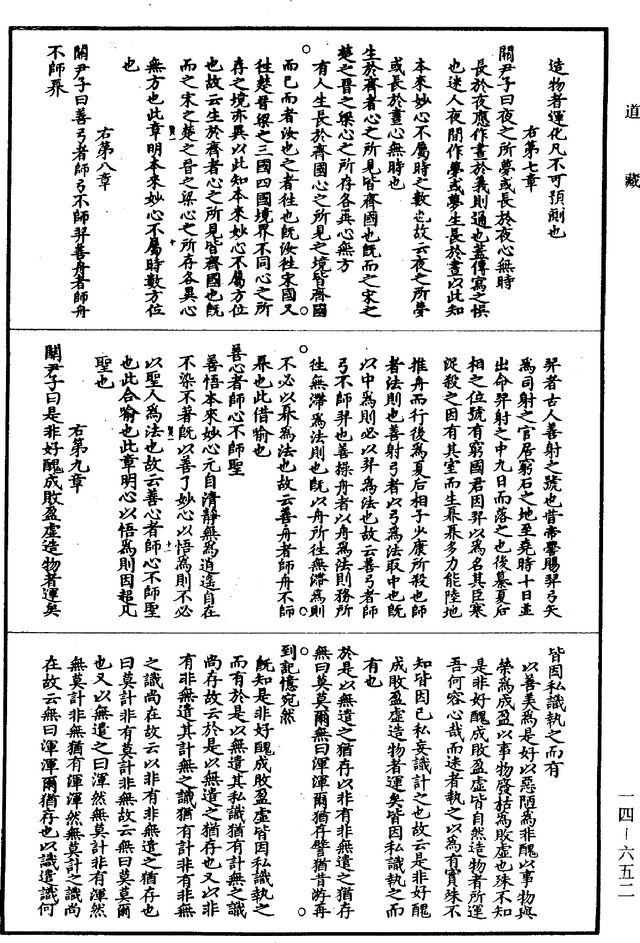 道藏
造物者運化凡不可預剬也
右第七章
關尹子曰夜之所夢或長於夜心無時
長於夜應作晝於義則通也蓋傳寫之悞
也迷人夜間作夢或夢生長於晝以此知
本來妙心不屬時之數也故云夜之所夢
或長於晝心無時也
生於齊者心之所見皆齊國也既而之宋之
楚之晉之梁心之所存各異心無方
有人生長於齊國心之所見之境皆齊國
而已而者汝也之者往也既汝往宋國又
往楚晉梁之三國四國境界不同心之所
存之境亦異以此知本來妙心不屬方位
也故云生於齊者心之所見皆齊國也既
而之宋之楚之晉之梁心之所存各異心
無方也此章明本來妙心不屬時數方位
也
右第八章
關尹子曰善弓者師弓不師羿善舟者師舟
不師奡
羿者古人善射之號也昔帝嚳賜羿弓矢
為司射之官居窮石之地至堯時十日並
出命羿射之中九日而落之也後篡夏后
相之位號有窮國君因羿以為名其臣寒
浞殺之因有其室而生奡奡多力能陸地
推舟而行後為夏后相子少康所殺也師
者法則也善射弓者以弓為法取中也既
以中為則必以羿為法也故云善弓者師
弓不師羿也善操舟者以舟為法則務所
往無滯為法則也既以舟所往無滯為則
不必以奡為法也故云善舟者師舟不師
奡也此借喻也
善心者師心不師聖
善悟本來妙心元自清靜無為逍遙自在
不染不著既以善了妙心以悟為則不必
以聖人為法也故云善心者師心不師聖
也此合喻也此章明心以悟為則因超凡
聖也
右第九章
關尹子曰是非好醜成敗盈虛造物者運矣
皆因私識執之而有
以善美為是好以惡陋為非醜以事物與
榮為成盈以事物廢枯為敗虛也殊不知
是非好醜成敗盈虛皆自然造物者所運
吾何容心哉而迷者執之以為有實殊不
知皆因已私妄識計之也故云是非好醜
成敗盈虛造物者運矣皆因私識執之而
有也
於是以無遣之猶存以非有非無遣之猶存
無曰莫莫爾無曰渾渾爾猶存譬猶昔游再
到記憶宛然
既知是非好醜成敗盈虛皆因私識執之
而有於是以無遣其私識猶有計無之識
尚存故云於是以無遣之猶存也又以非
有非無遣其計無之識猶有計非有非無
之識尚在故云以非有非無遣之猶存也
曰莫計非有莫計非無故云無曰莫莫爾
也又以無遣之曰渾然無莫計非有渾然
無莫計非無猶有渾渾然無莫計之識尚
在故云無曰渾渾爾猶存也以識遣識何
一四－六五二